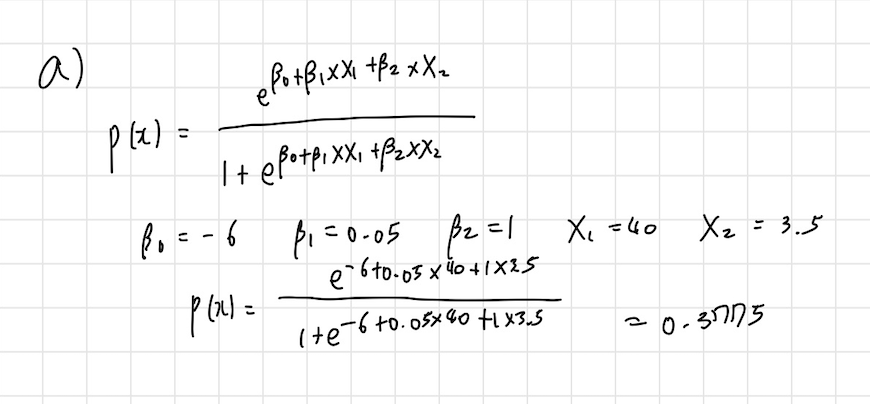 a)
p(x) = e^{β₀+β₁×X₁+β₂×X₂} / 1+e^{β₀+β₁×X₁+β₂×X₂}
β₀ = -6 β₁ = 0.05 β₂ = 1 X₁ = 40 X₂ = 3.5
p(x) = e^{-6+0.05×40+1×3.5} / 1+e^{-6+0.05×40+1×3.5} = 0.3775